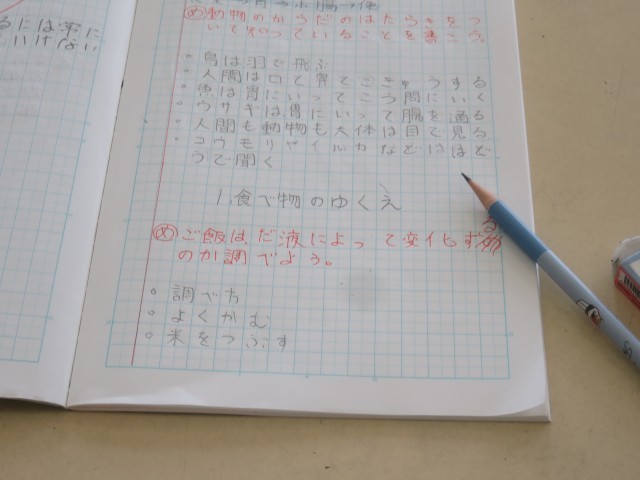 るには常に
いけない
め 動物のからだのはたらきをつ
いて知っていることを書こう。
。鳥は羽で飛ぶ
。人間は口で胃でこきゅうする
。魚は胃にいってこう門にいく
。ウサギは胃にいって腸を通る
。人間も動物も大体は目で見る
。コウモリやイルカなどははど
うで聞く
1.食べ物のゆくえ
め ご飯は、だ液によって変化する
のか調べよう。
。調べ方
。よくかむ
。米をつぶす